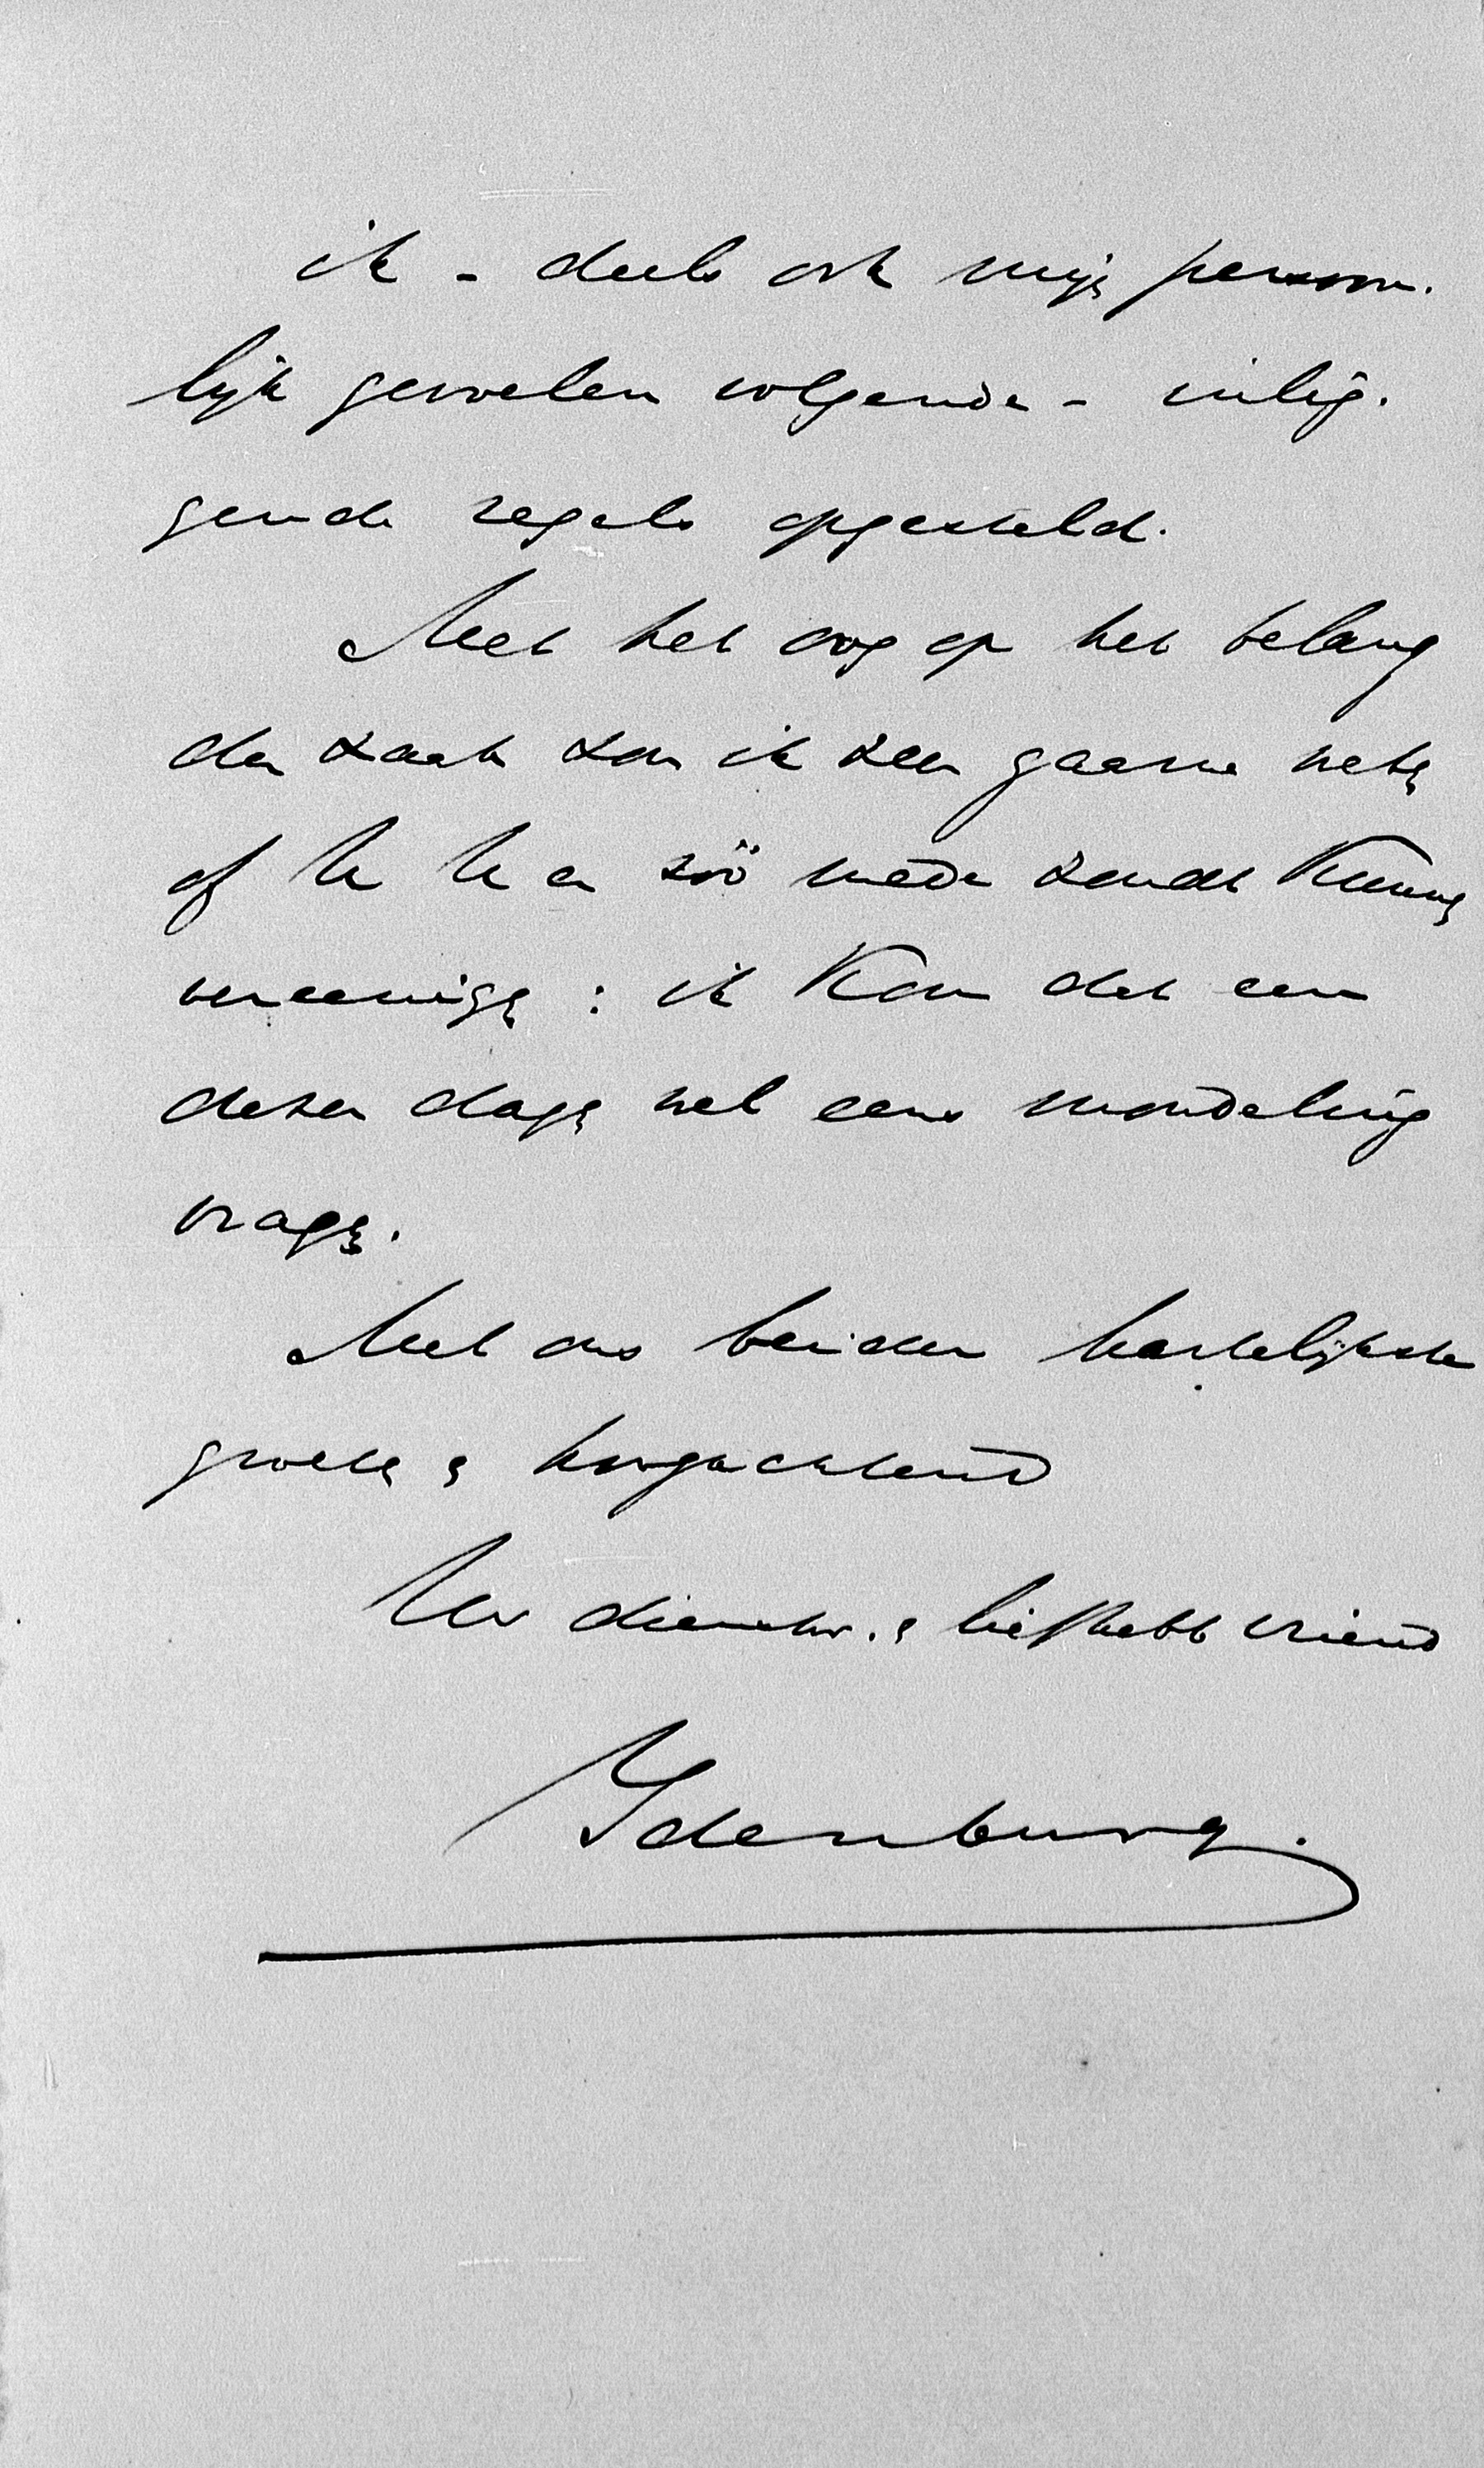 ik - deels ook mijn persoon-
lijk gevoelen volgende - inlig-
gende regels opgesteld.
Met het oog op het belang
der zaak zou ik zeer gaarne weten
of U U er zóó mede zoudt kunnen
vereenigen: ik kom dat een
dezer dagen wel eens mondeling
vragen.
Met ons beider hartelijkste
groeten en hoogachtend
Uw dienstw. en liefhebb vriend
Idenburg.